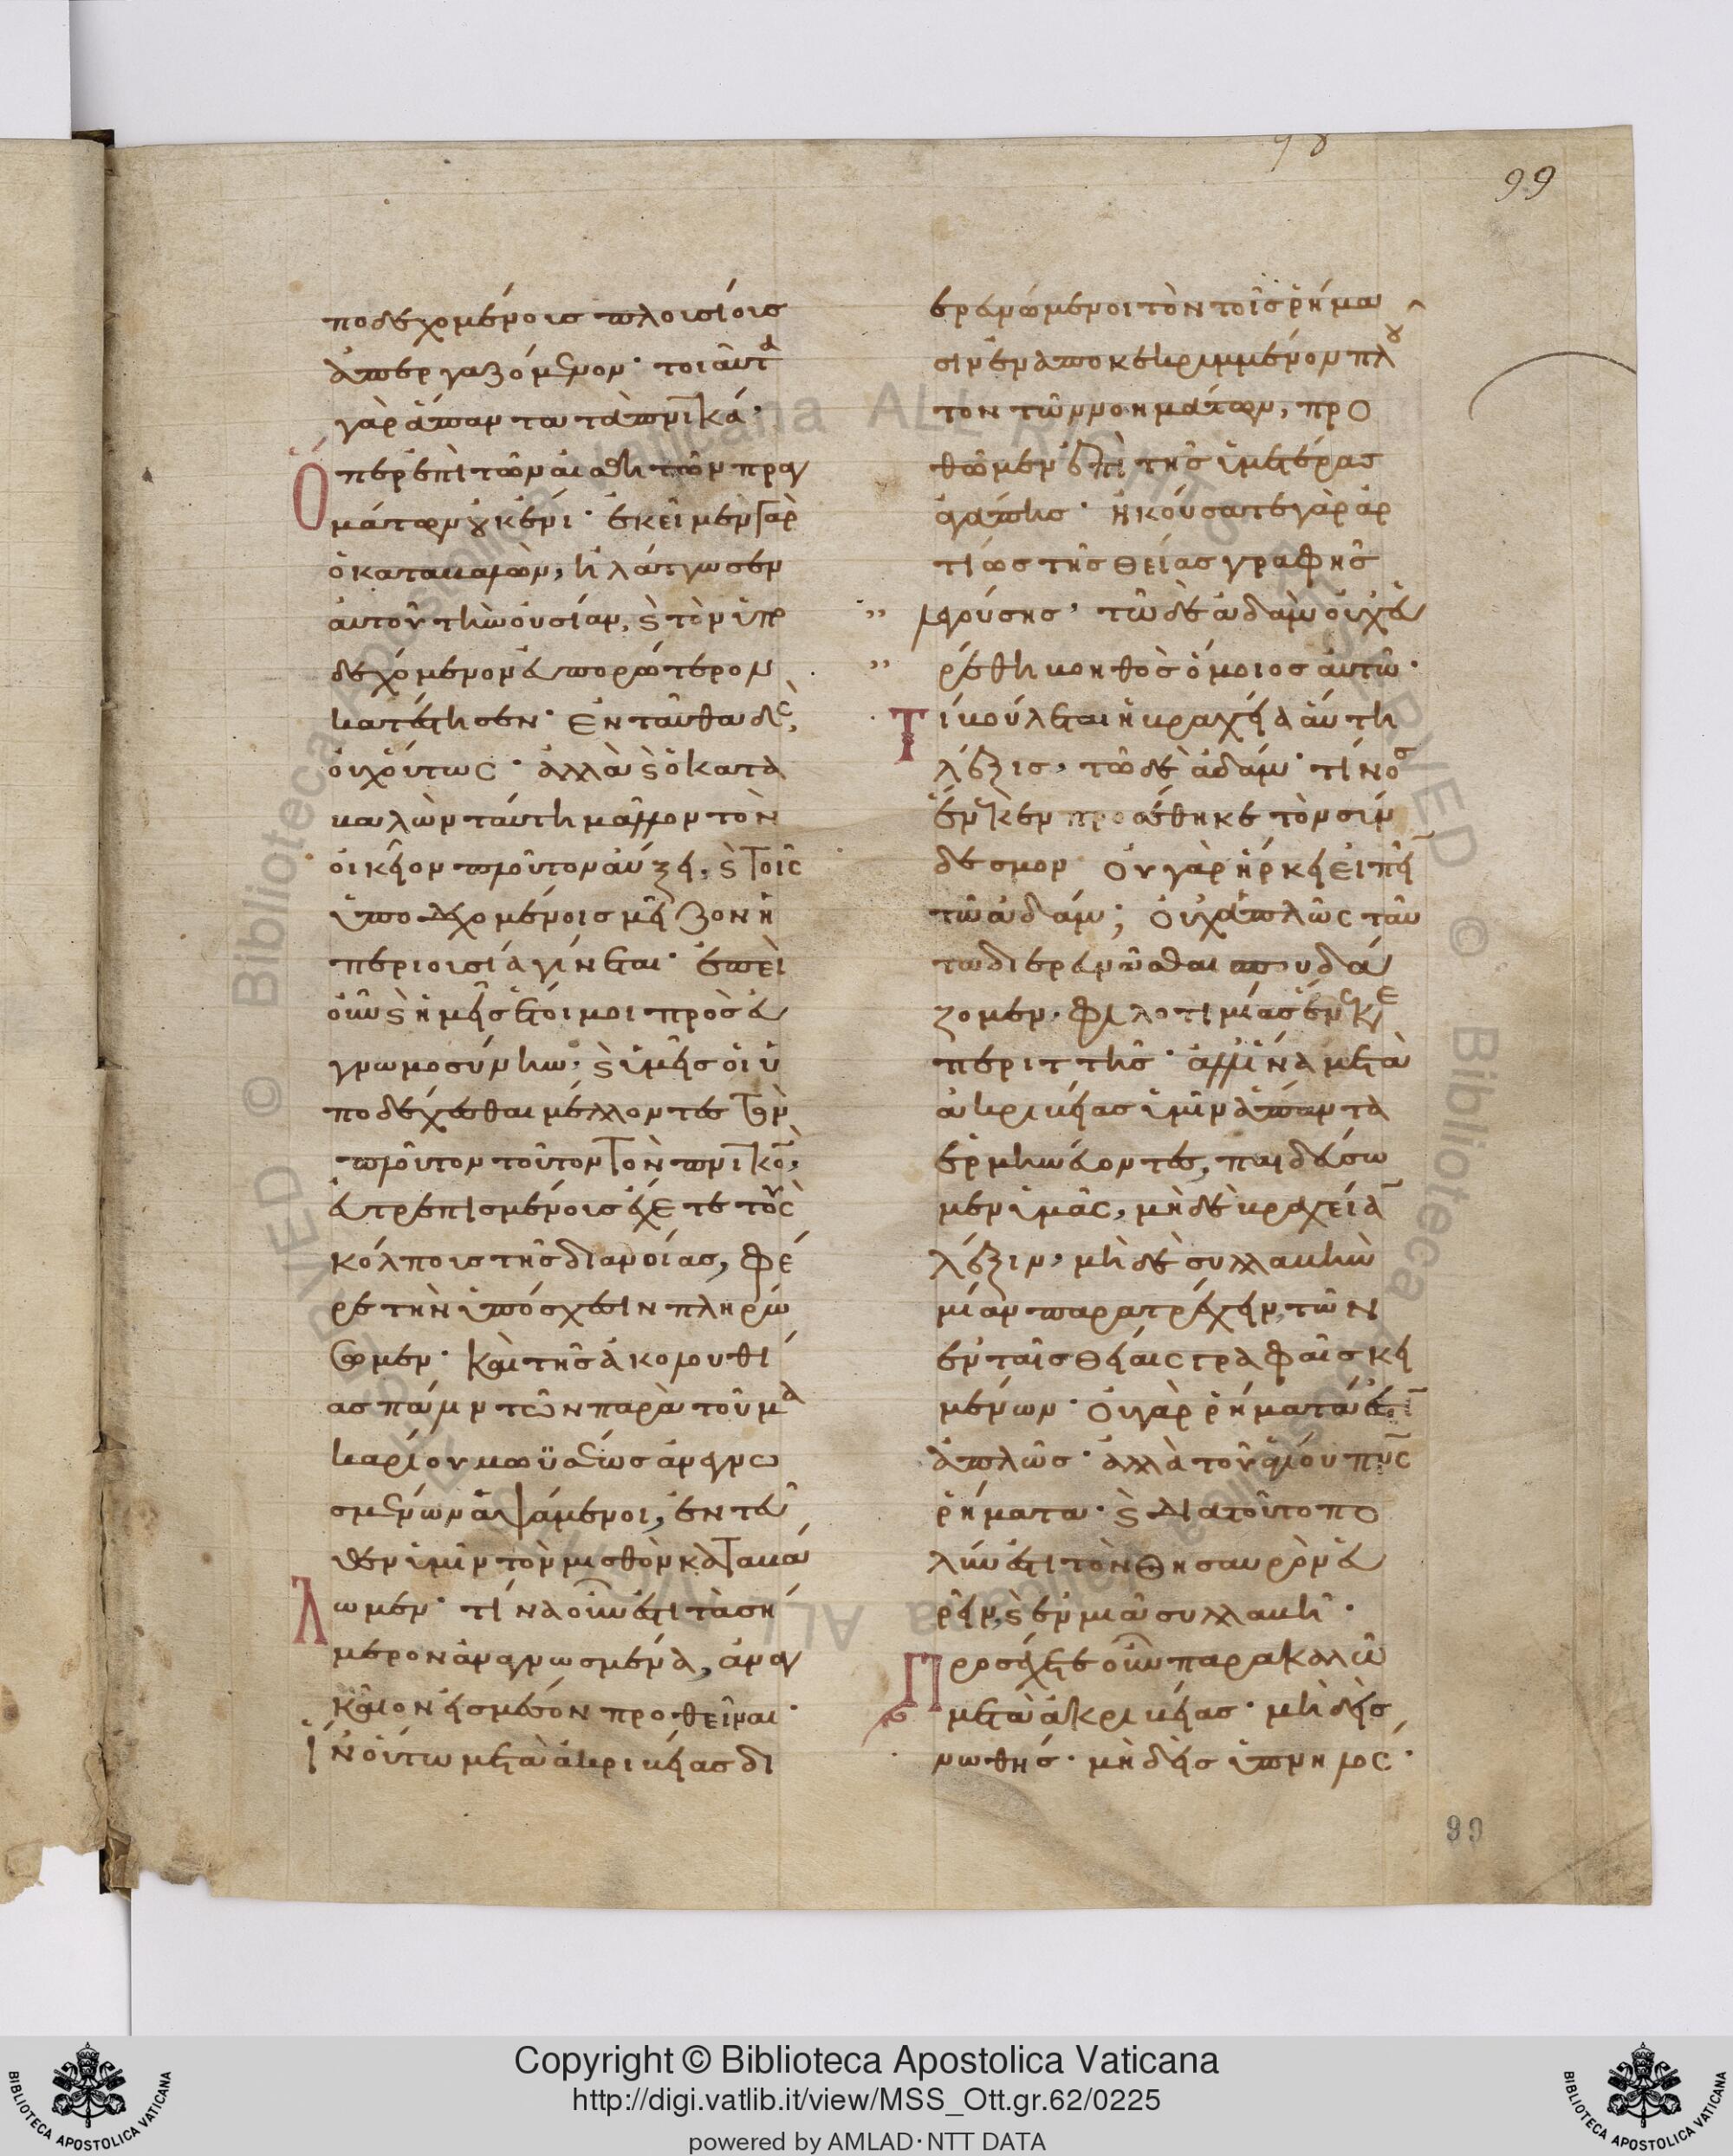 98
99
ποδεχομένοις πλουσίους
ἀπεργαζόμενον· τοιαῦτα
γὰρ ἅπαντα τὰ πνικά·
Ὅπερ ἐπὶ τῶν αἰσθητῶν πραγ
μάτων οὐκ ἔνι· ἐκεῖ μὲν γὰρ
ὁ καταβαλὼν, ἠλάττωσεν
αὐτοῦ τὴν οὐσίαν, ϗ τὸν ὑπο
δεχόμενον εὐπορώτερον
κατέστησεν· Ἐνταῦθα δὲ,
οὐχ οὕτως· ἀλλὰ ϗ ὁ κατα
βαλὼν ταύτη μᾶλλον τὸν
οἰκεῖον πλοῦτον αὔξει, ϗ τοῖς
ὑποδεχομένοις μείζον ἡ
περιουσία γίνεται· ἐπεὶ
οὖν ϗ ἡμεῖς ἕτοιμοι πρὸς εὐ
γνωμοσύνην, ϗ ὑμεῖς οἱ ὑ
ποδέχεσθαι μέλλοντες τὸν
πλοῦτον τοῦτον τὸν πνικὸν,
εὐτρεπισμένους ἔχετε τοὺς
κόλπους τῆς διανοίας, φέ
ρε τὴν ὑπόσχεσιν πληρώ
σωμεν· καὶ τῆς ἀκολουθί
ας πάλιν τῶν παρὰ τοῦ μα
καρίου μωϋσέως ἀνεγνω
σμένων ἁψάμενοι, ἐντεῦ
θεν ὑμῖν τὸν μισθὸν καταβάλ
ωμεν· τίνα οὖν ἐστι τὰ σή
μερον ἀνεγνωσμένα, ἀναγ
καῖον εἰς μέσον προθεῖναι·
ἵν οὕτω μετὰ ἀκριβείας δι
ερευνώμενοι τὸν τοῖς ῥήμα
σιν ἐναποκεκρυμμένον πλοῦ
τον τῶν νοημάτων, προ
θῶμεν ἐπὶ τῆς ὑμετέρας
ἀγάπης· ἠκούσατε γὰρ ἀρ
τίως τῆς θείας γραφῆς
" λεγούσης, τῶ δὲ ἀδὰμ οὐχ εὑ
" ρέθη βοηθὸς ὅμοιος αὐτῶ·
Τί βούλεται ἡ βραχεῖα αὕτη
λέξις, τῶ δὲ ἀδάμ· τίνος
ἕνεκεν προσέθηκε τὸν σύν
δεσμον Οὐ γὰρ ἤρκει εἰπεῖν
τῶ ἀδάμ; Οὐχ ἁπλῶς ταῦ
τα διερευνᾶσθαι σπουδά
ζομεν· φιλοτιμίας ἕνεκε
περιττῆς· ἀλλ' ἵνα μετὰ
ἀκριβείας ὑμῖν ἅπαντα
ἑρμηνεύοντες, παιδεύσω
μεν ὑμᾶς, μὴ δὲ βραχεῖαν
λέξιν, μὴ δὲ συλλαβὴν
μίαν παρατρέχειν τῶν
ἐν ταῖς θείαις γραφαῖς κει
μένων· Οὐ γὰρ ῥήματά ἐστιν
ἁπλῶς· ἀλλὰ τοῦ ἁγίου πνς
ῥήματα· ϗ διὰ τοῦτο πο
λύν ἐστι τὸν θησαυρὸν εὑ
ρεῖν, ϗ ἐν μιᾶ συλλαβῆ·
Προσέχετε οὖν παρακαλῶ
μετὰ ἀκριβείας· μὴ δεὶς
νωθής· μὴ δεὶς ὑπνηλός·
99
© Biblioteca Apostolica Vaticana ALL RIGHTS RESERVED
Copyright © Biblioteca Apostolica Vaticana
http://digi.vatlib.it/view/MSS_Ott.gr.62/0225
powered by AMLAD·NTT DATA
BIBLIOTECA APOSTOLICA VATICANA
BIBLIOTECA APOSTOLICA VATICANA